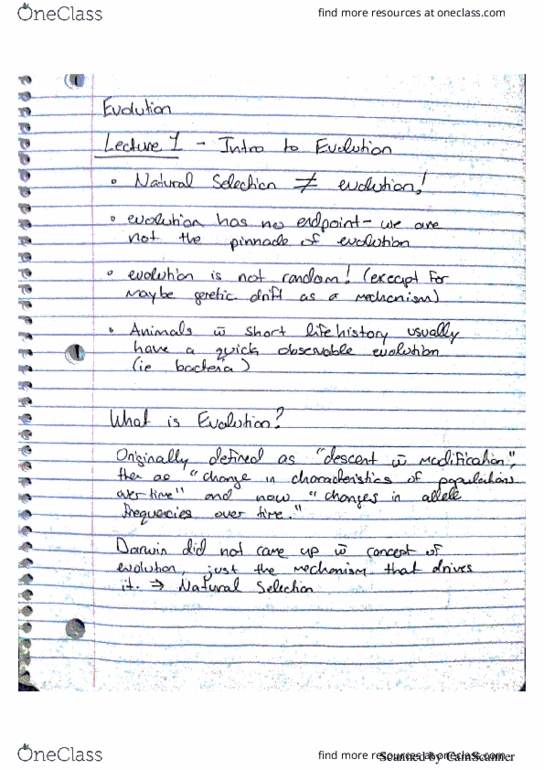 OneClass
find more resources at oneclass.com
Evolution
Lecture 1 - Intro to Evolution
• Natural Selection ≠ evolution!
• evolution has no endpoint - we are
not the pinnacle of evolution
• evolution is not random! (except for
maybe genetic drift as a mechanism)
• Animals w̄ short life history usually
have a quick observable evolution
(ie bacteria)
What is Evolution?
Originally defined as "descent w̄ modification",
then as "change in characteristics of populations
over time" and now "changes in allele
frequencies over time."
Darwin did not come up w̄ concept of
evolution, just the mechanism that drives
it. → Natural Selection
OneClass
find more resources at oneclass.com
Scanned by CamScanner